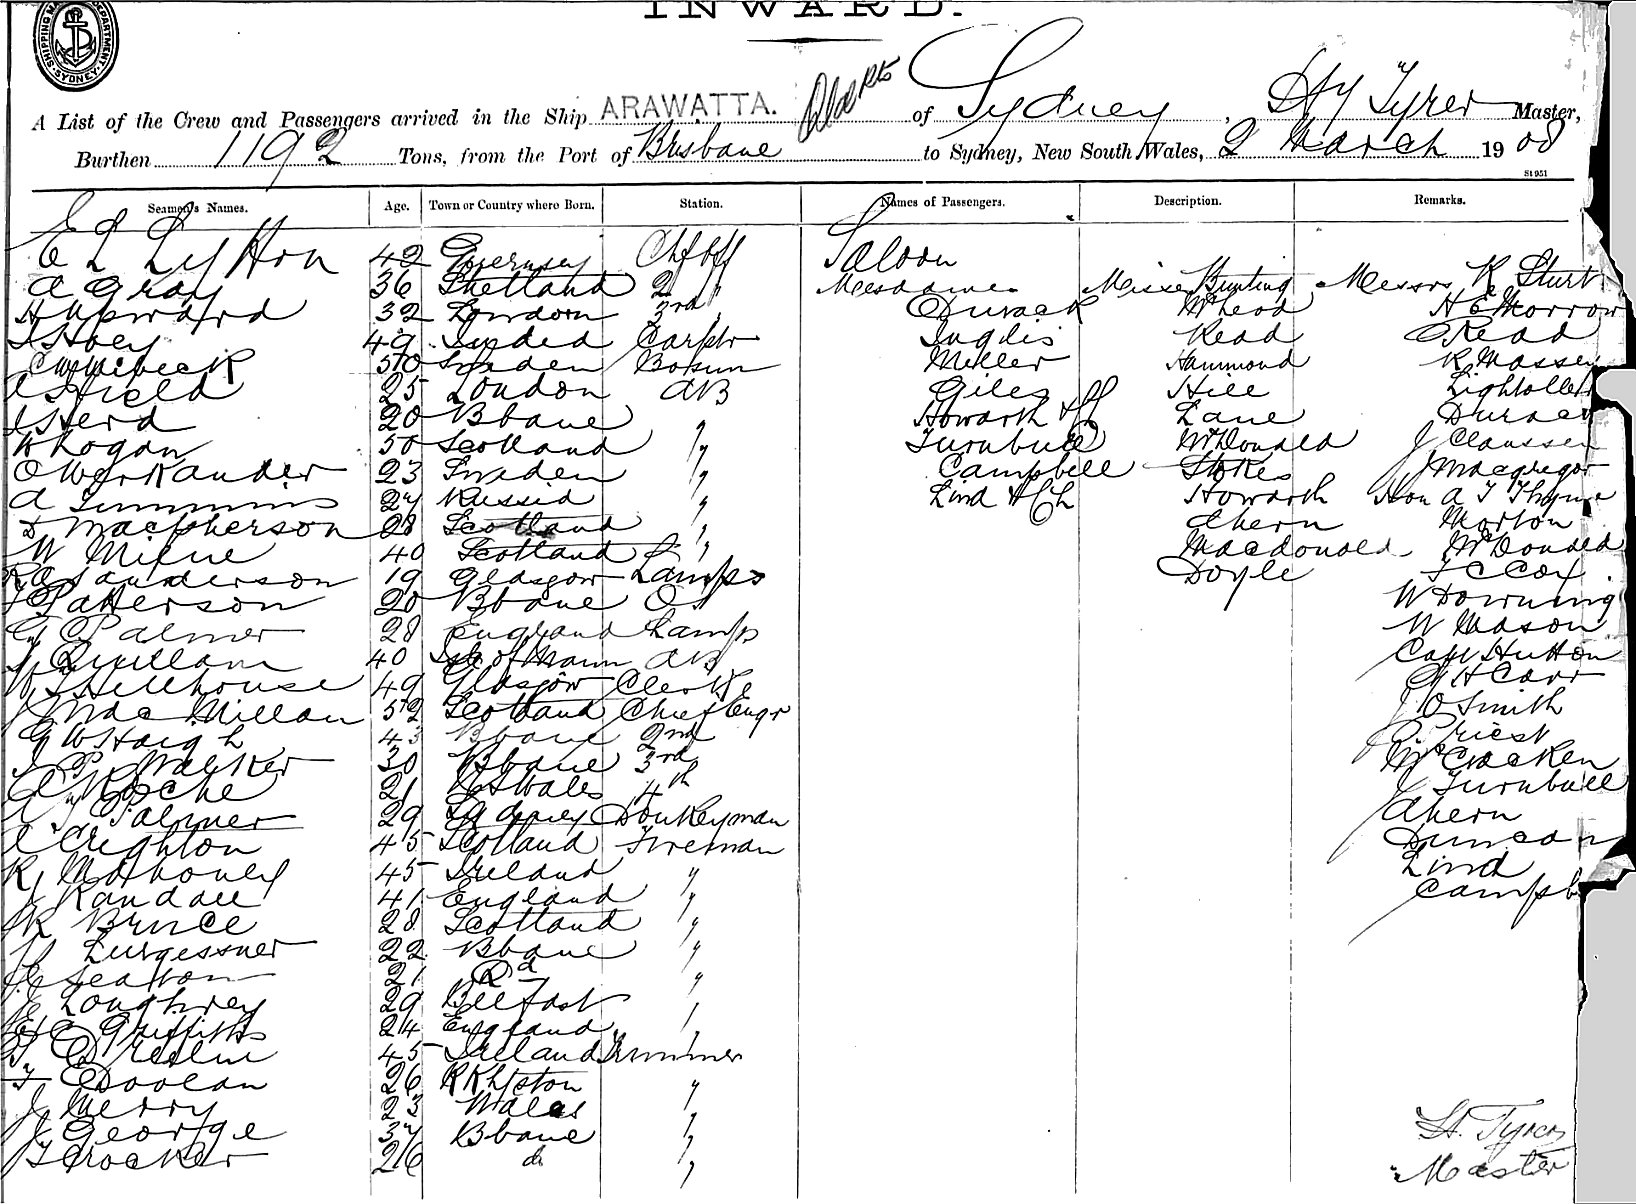 INWARD.
SHIPPING MASTER'S DEPARTMENT SYDNEY
A List of the Crew and Passengers arrived in the Ship ARAWATTA. of Sydney, Hy Tyrer Master,
Burthen 1192 Tons, from the Port of Brisbane to Sydney, New South Wales, 2 March 1908
St 951
Seamen's Names. Age. Town or Country where Born. Station. Names of Passengers. Description. Remarks.
E L Lytton 42 Guernsey Chf Off Saloon
A Gray 36 Shetland 2 " Mesdames Misses Bunting Messrs R Sturt
32 London 3rd " Durack McLeod H E Morrow
49 Carptr Inglis Read Read
50 Sweden Bosun Miller Hammond R Massey
A Field 25 London AB Giles Hill Lightoller
J Herd 20 Bbane " Howarth & Lane Durack
W Logan 50 Scotland " Turnbull McDonald J Claussen
O Werkander 23 Sweden " Campbell Stokes J Macgregor
A 24 Russia " Lind & Ch Howarth Hon A J Thynne
D Macpherson 28 Scotland " Ahern Morton
W Milne 40 Scotland " Macdonald McDonald
R G Sanderson 19 Glasgow Lamps Doyle T C Cox
Patterson 20 Bbane OS W Downing
G C Palmer 28 England Lamps W Mason
J Quillam 40 Isle of Mann AB Capt Hutton
W J Hillhouse 49 Glasgow Clerk G H Carr
J MacMillan 52 Scotland Chief Engr J O Smith
G W Haigh 43 Bbane 2nd Priest
J P Walker 30 Bbane 3rd McCracken
C Roche 21 NSWales 4th J Turnbull
Palmer 29 Sydney Donkeyman Ahern
Creighton 45 Scotland Fireman Duncan
R Mahoney 45 Ireland " Lind
J Randall 41 England " Campb
R Bruce 28 Scotland "
Lurgessner 22 Bbane "
Seaton 21 "
J Loughrey 29 Belfast "
Griffiths 24 England "
45 Ireland Trimmer
T Doolan 26 RKhpton "
J Merry 23 Wales "
J George 34 Bbane "
T Crocker 26 do "
H. Tyrer
Master